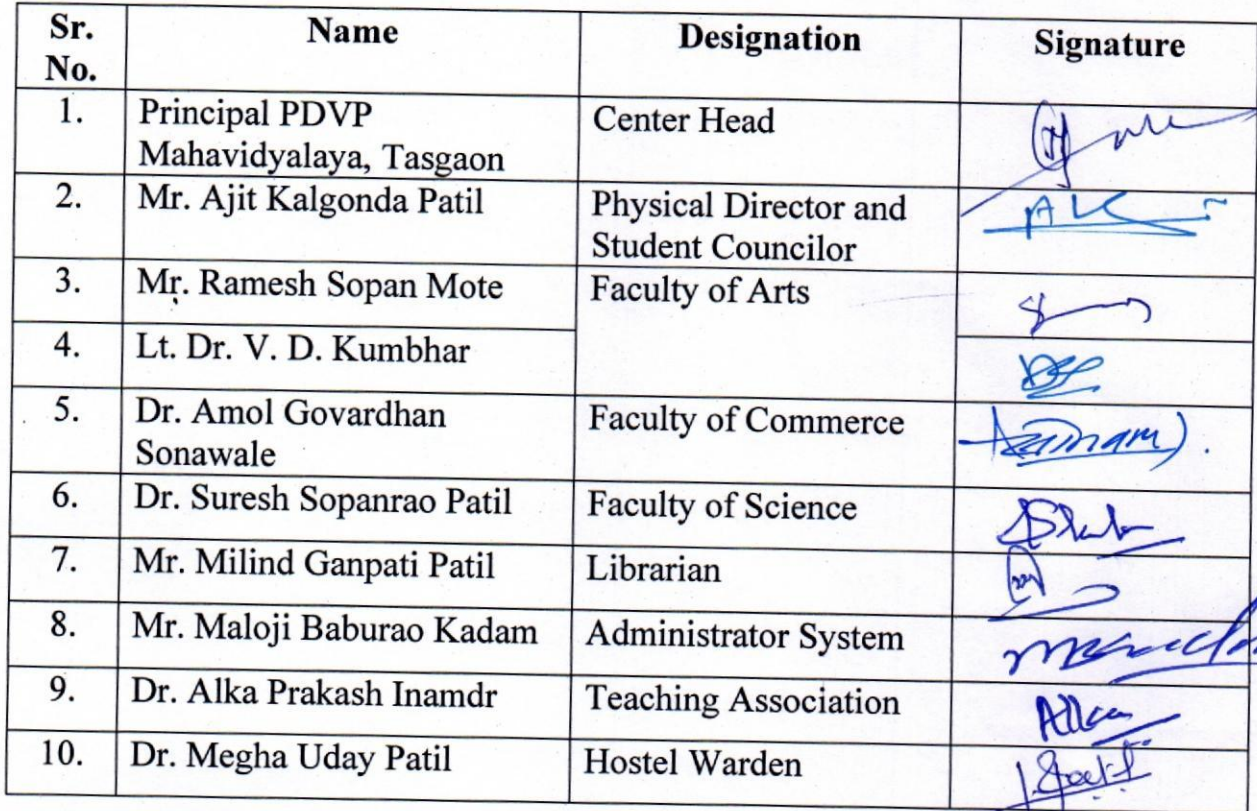 Sr. No. Name Designation Signature
1. Principal PDVP Center Head
Mahavidyalaya, Tasgaon
2. Mr. Ajit Kalgonda Patil Physical Director and
Student Councilor
3. Mr. Ramesh Sopan Mote Faculty of Arts
4. Lt. Dr. V. D. Kumbhar
5. Dr. Amol Govardhan Faculty of Commerce
Sonawale
6. Dr. Suresh Sopanrao Patil Faculty of Science
7. Mr. Milind Ganpati Patil Librarian
8. Mr. Maloji Baburao Kadam Administrator System
9. Dr. Alka Prakash Inamdr Teaching Association
10. Dr. Megha Uday Patil Hostel Warden